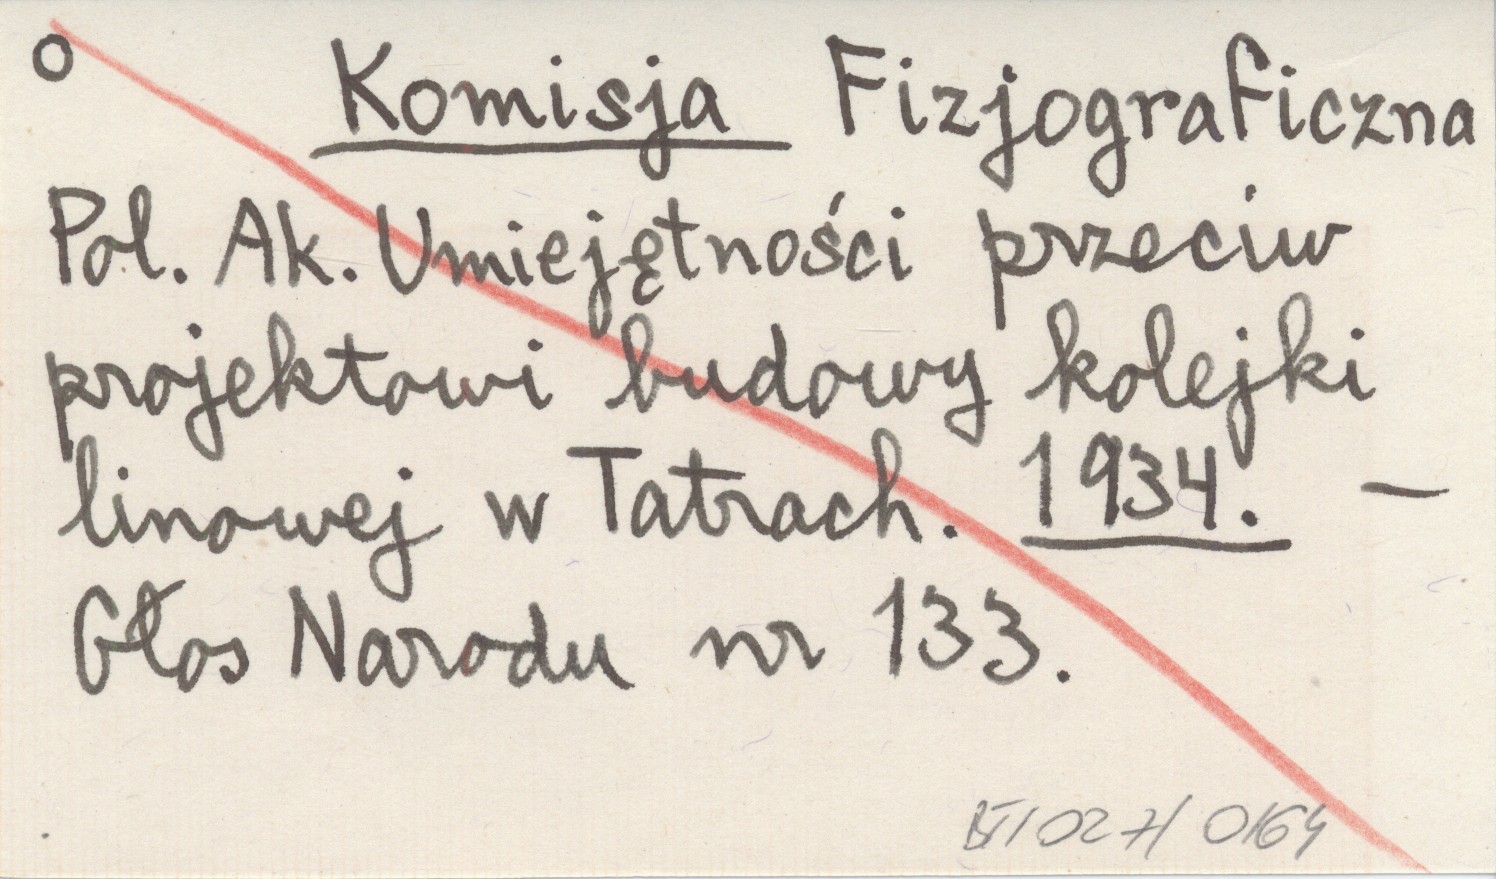 o Komisja Fizjograficzna
Pol. Ak. Umiejętności przeciw
projektowi budowy kolejki
linowej w Tatrach. 1934. —
Głos Narodu nr 133.
BT/027/0164